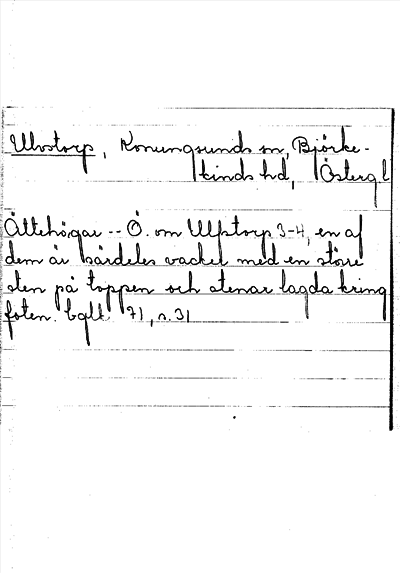 Ulvstorp, Konungsunds sn, Björke-
kinds hd, Östergl
Ättehögar -- Ö. om Ulfstorp 3-4, en af
dem är särdeles vacker med en större
sten på toppen och stenar lagda kring
foten. bglt 71, s. 31